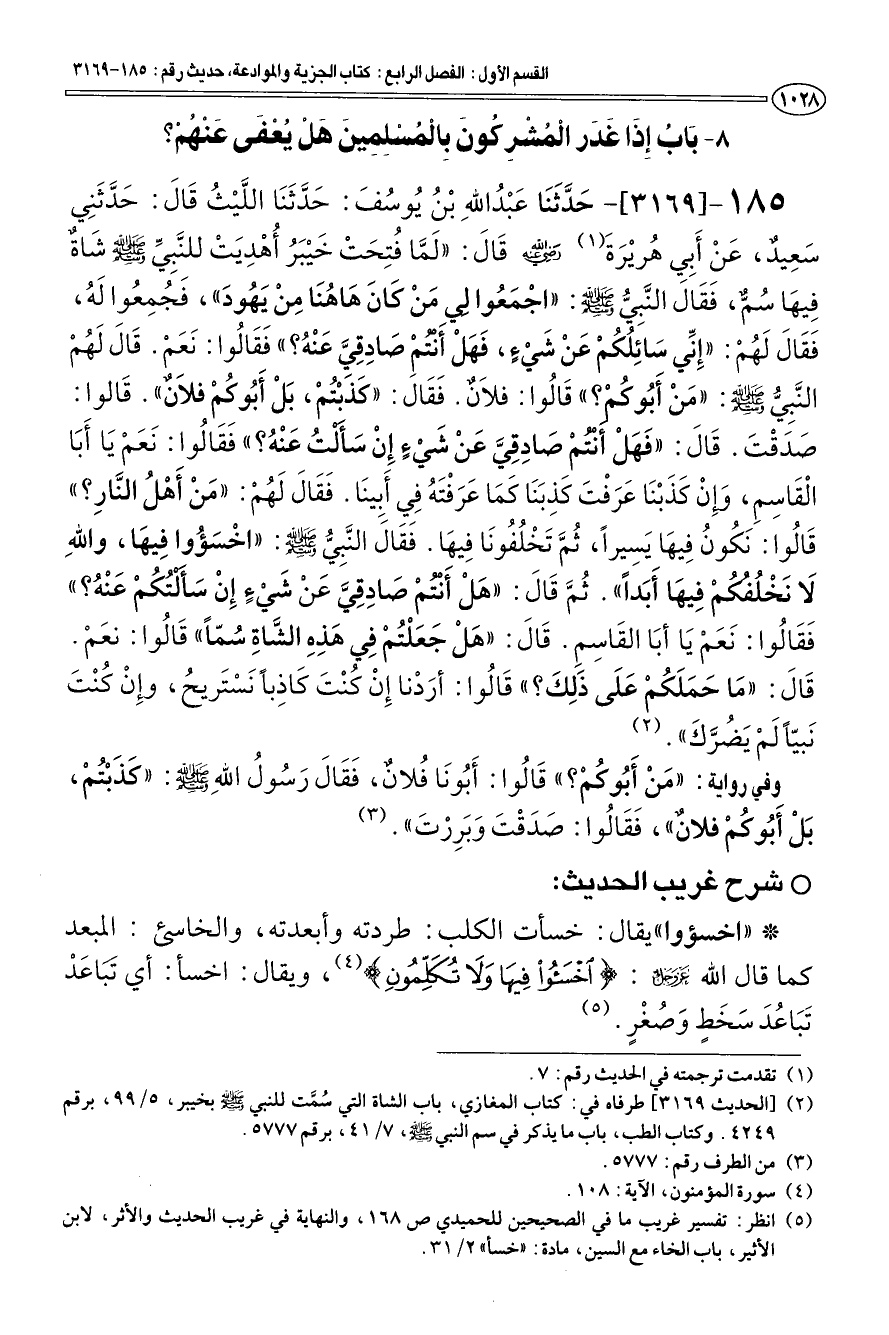 القسم الأول: الفصل الرابع: كتاب الجزية والموادعة، حديث رقم: ١٨٥-٣١٦٩
١٠٢٨
٨- بَابُ إِذَا غَدَر الْمُشْرِكُونَ بِالْمُسْلِمِينَ هَلْ يُعْفَى عَنْهُمْ؟
١٨٥ -[٣١٦٩]- حَدَّثَنَا عَبْدُالله بْنُ يُوسُفَ: حَدَّثَنَا اللَّيْثُ قَالَ: حَدَّثَنِي
سَعِيدٌ، عَنْ أَبِي هُرَيْرَةَ(١) رَضِيَ اللهُ عَنْهُ قَالَ: «لَمَّا فُتِحَتْ خَيْبَرُ أُهْدِيَتْ للنَّبِيِّ ﷺ شَاةٌ
فِيهَا سُمٌّ، فَقَالَ النَّبِيُّ ﷺ: «اجْمَعُوا لِي مَنْ كَانَ هَاهُنَا مِنْ يَهُودَ»، فَجُمِعُوا لَهُ،
فَقَالَ لَهُمْ: «إِنِّي سَائِلُكُمْ عَنْ شَيْءٍ، فَهَلْ أَنْتُمْ صَادِقِيَّ عَنْهُ؟» فَقَالُوا: نَعَمْ. قَالَ لَهُمُ
النَّبِيُّ ﷺ: «مَنْ أَبُوكُمْ؟» قَالُوا: فلانٌ. فَقَالَ: «كَذَبْتُمْ، بَلْ أَبُوكُمْ فلانٌ». قَالوا:
صَدَقْتَ. قَالَ: «فَهَلْ أَنْتُمْ صَادِقِيَّ عَنْ شَيْءٍ إِنْ سَأَلْتُ عَنْهُ؟» فَقَالُوا: نَعَمْ يا أَبَا
الْقَاسِمِ، وَإِنْ كَذَبْنَا عَرَفْتَ كَذِبَنَا كَمَا عَرَفْتَهُ فِي أَبِينَا. فَقَالَ لَهُمْ: «مَنْ أَهْلُ النَّارِ؟»
قَالُوا: نَكُونُ فِيهَا يَسِيراً، ثُمَّ تَخْلُفُونَا فِيهَا. فَقَالَ النَّبِيُّ ﷺ: «اخْسَؤُوا فِيهَا، واللهِ
لَا نَخْلُفُكُمْ فِيهَا أَبَداً». ثُمَّ قَالَ: «هَلْ أَنْتُمْ صَادِقِيَّ عَنْ شَيْءٍ إِنْ سَأَلْتُكُمْ عَنْهُ؟»
فَقَالُوا: نَعَمْ يَا أبَا القَاسِمِ. قَالَ: «هَلْ جَعَلْتُمْ فِي هَذِهِ الشَّاةِ سُمّاً» قَالُوا: نعَمْ.
قَالَ: «مَا حَمَلَكُمْ عَلَى ذَلِكَ؟» قَالُوا: أرَدْنا إِنْ كُنْتَ كَاذِباً نَسْتَريحُ، وإِنْ كُنْتَ
نَبيّاً لَمْ يَضُرَّكَ».(٢)
وفي رواية: «مَنْ أَبُوكُمْ؟» قَالُوا: أَبُونَا فُلانٌ، فَقَالَ رَسُولُ اللهِ ﷺ: «كَذَبْتُمْ،
بَلْ أَبُوكُمْ فلانٌ»، فَقَالُوا: صَدَقْتَ وَبَرِرْتَ».(٣)
○ شرح غريب الحديث:
* «اخسؤوا» يقال: خسأت الكلب: طردته وأبعدته، والخاسئ: المبعد
كما قال الله عَزَّوَجَلَّ: ﴿ٱخْسَـُٔوا۟ فِيهَا وَلَا تُكَلِّمُونِ﴾(٤)، ويقال: اخسأ: أي تَبَاعَدْ
تَبَاعُدَ سَخَطٍ وَصُغْرٍ.(٥)
(١) تقدمت ترجمته في الحديث رقم: ٧.
(٢) [الحديث ٣١٦٩] طرفاه في: كتاب المغازي، باب الشاة التي سُمَّت للنبي ﷺ بخيبر، ٥/ ٩٩، برقم
٤٢٤٩. وكتاب الطب، باب ما يذكر في سم النبي ﷺ، ٧/ ٤١، برقم ٥٧٧٧.
(٣) من الطرف رقم: ٥٧٧٧.
(٤) سورة المؤمنون، الآية: ١٠٨.
(٥) انظر: تفسير غريب ما في الصحيحين للحميدي ص ١٦٨، والنهاية في غريب الحديث والأثر، لابن
الأثير، باب الخاء مع السين، مادة: «خسأ» ٢/ ٣١.